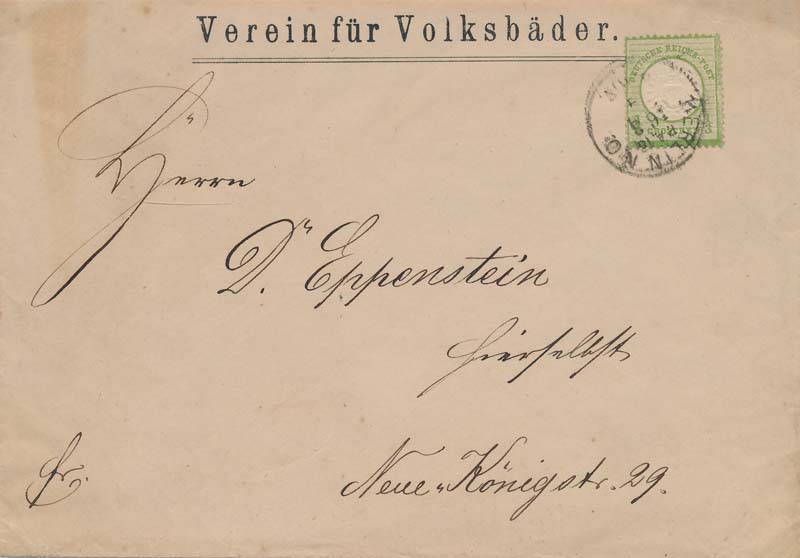 Verein für Volksbäder.
DEUTSCHE REICHS-POST
BERLIN N.O.
Herrn
Dr. Eppenstein
hierselbst
fr.
Neue Königstr. 29.